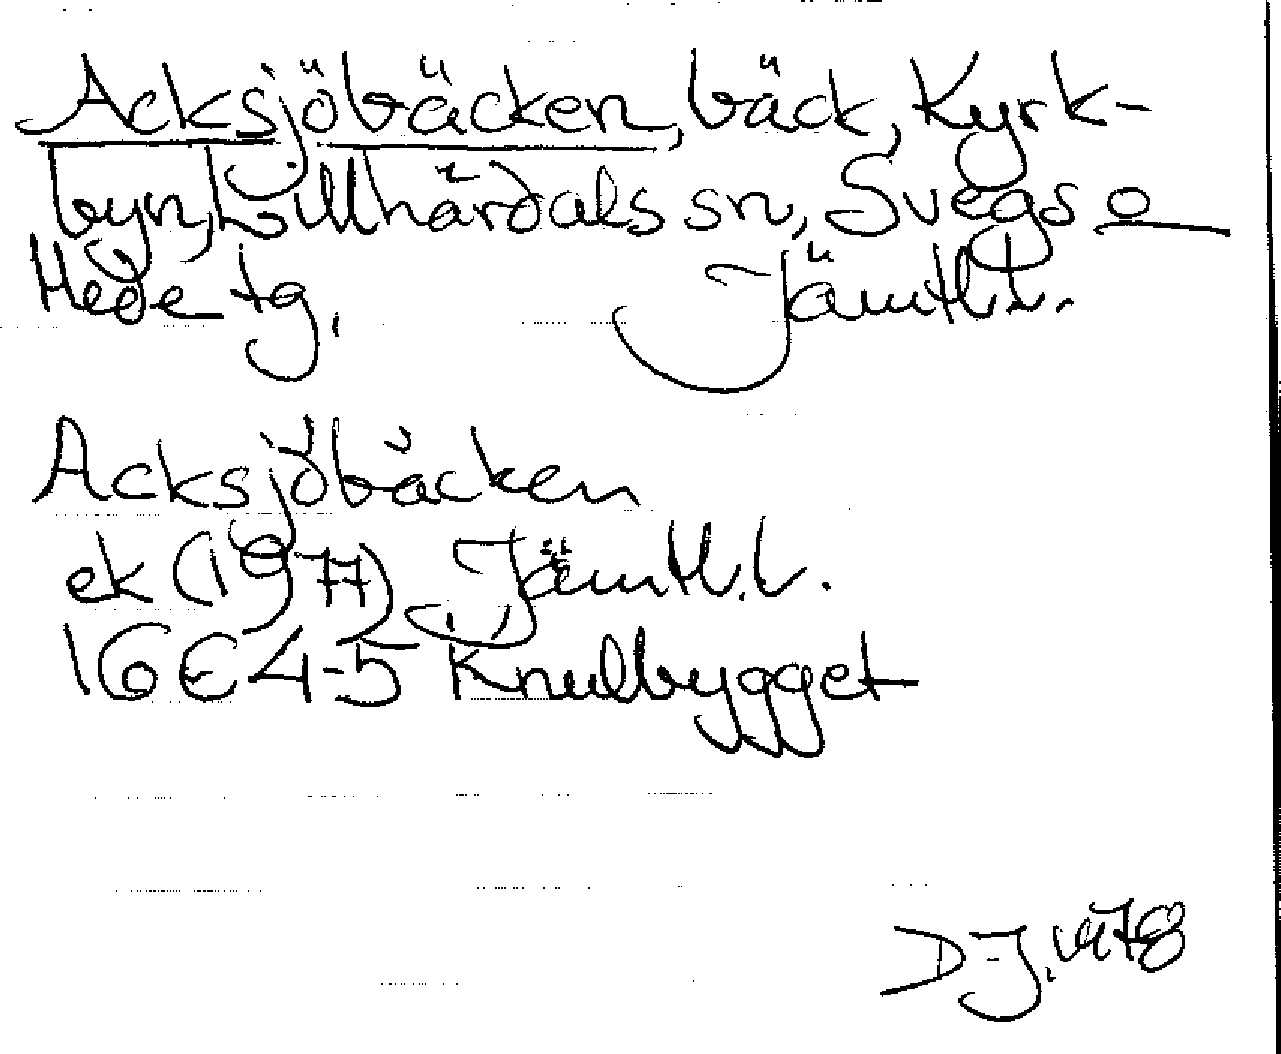 Acksjöbäcken, bäck, Kyrk-
byn, Lillhärdals sn, Svegs o
Hede tg. Jämtl.l.
Acksjöbäcken
ek (1977) Jämtl.l.
16E 4-5 Knullbygget